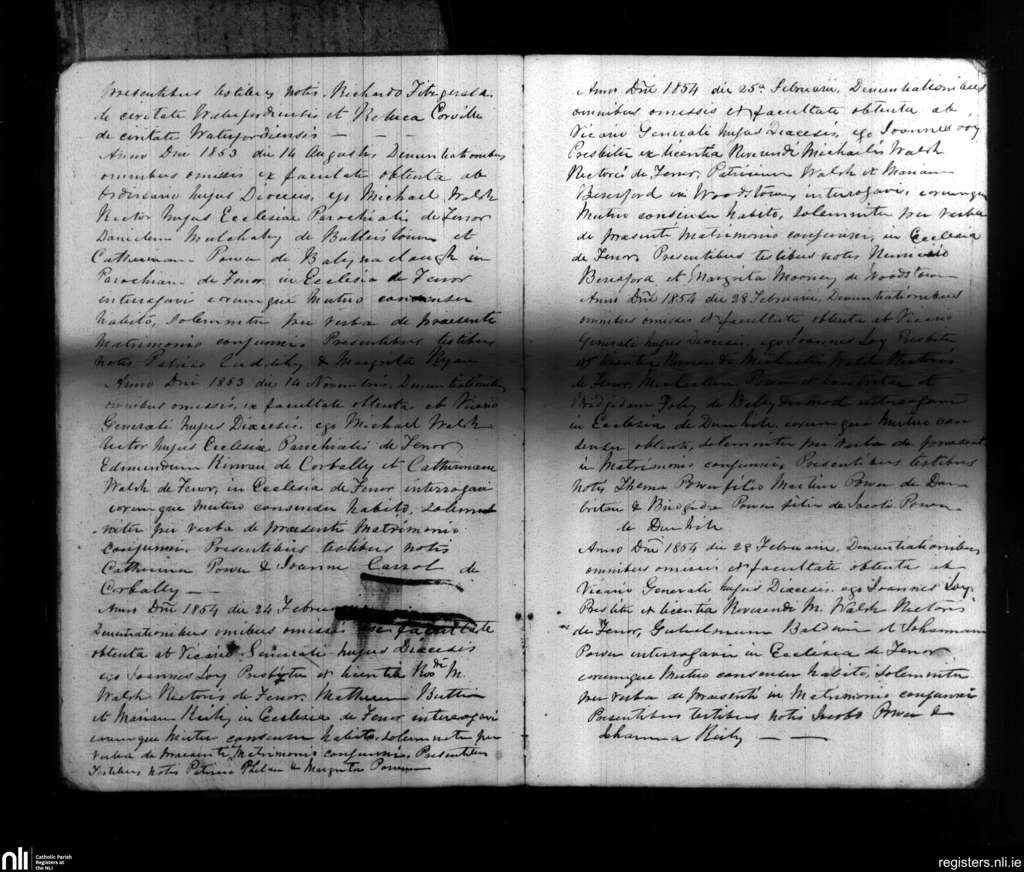 Presentibus testibus notis. Richardo Fitzgerald
de civitate Waterfordiensis et Rebeca Corville
de civitate Waterfordiensis — — —
Anno Dni 1853 die 14 Augusti, Denuntiationibus
omnibus omissis ex facultate obtenta ab
Ordinario hujus Diocesis, ego Michael Walsh
Rector hujus Ecclesiae Parochialis de Fenor
Danielem Mulchahy de Butlerstown et
Catherinam Power de in
Parochia de Fenor in Ecclesia de Fenor
interrogavi eorumque mutuo consensu
habito, solemniter per verba de praesente
Matrimonio conjunxi Presentibus testibus
notis Patricio & Margrita Ryan
Anno Dni 1853 die 14 Novembris, Denuntiationibus
omnibus omissis, ex facultate obtenta ab Vicario
Generali hujus Diocesis. ego Michael Walsh
Rector hujus Ecclesia Parochialis de Fenor
Edmundum Kirwan de Corbally et Catherinam
Walsh de Fenor, in Ecclesia de Fenor interrogavi
eorumque mutuo consensu habito, solem
niter per verba de praesente Matrimonio
conjunxi. Presentibus testibus notis
Catherina Power & Joanne Carrol de
Corbally —
Anno Dni 1854 die 24 Februarii
Denuntiationibus omibus omissis facultate
obtenta ab Vicario Generali hujus Diocesis
ego Joannes Loy Presbyter et licentia Rvdi M.
Walsh Rectoris de Fenor, Matheum Butler
et Mariam Reily in Ecclesia de Fenor interrogavi
eorumque mutuo consensu habito, solemniter per
verba de praesente Matrimonio conjunxi. Presentibus
Testibus notis Patricio Phelan & Margrita Power
Anno Dni 1854 die 25a Februarii, Denuntiationibus
omnibus omissis et facultate obtenta ab
Vicario Generali hujus Diocesis, ego Joannes Loy
Presbiter ex licentia Reverendi Michaelis Walsh
Rectoris de Fenor, Patricium Walsh et Mariam
Beresford in Woodstown, interrogavi, eorumque
Mutuo consensu habito, solemniter per verba
de praesenti Matrimonio conjunxi, in Ecclesia
de Fenor, Presentibus testibus notis
Beresford et Margrita Mooney de Woodstown
Anno Dni 1854 die 28 Februarii, Denuntiationibus
omnibus omissis et facultate obtenta ab Vicario
Generali hujus Diocesis, ego Joannes Loy Presbiter
et licentia Reverendi Michaelis Walsh Rectoris
de Fenor, Power et
Bridgidam Foley de interrogavi
in Ecclesia de Dunhile eorumque mutuo con
sensu obtento, solemniter per verba de praesenti
in Matrimonio conjunxi, Presentibus testibus
notis Thoma Power filio Martini Power de
& Brigida Power filia de Jacobi Power
de Dunhile
Anno Dni 1854 die 28 Februarii, Denuntiationibus
omnibus omissis et facultate obtenta ab
Vicario Generali hujus Diocesis, ego Joannes Loy
Presbiter et licentia Reverendi M. Walsh Rectoris
de Fenor, Gulielmum Baldwin et Johannam
Power interrogavi in Ecclesia de Fenor
eorumque Mutuo consensu habito, solemniter
per verba de praesenti in Matrimonio conjunxi
Presentibus testibus notis Jacobo Power &
Johanna Reily — —
nli Catholic Parish
Registers at
the NLI
registers.nli.ie